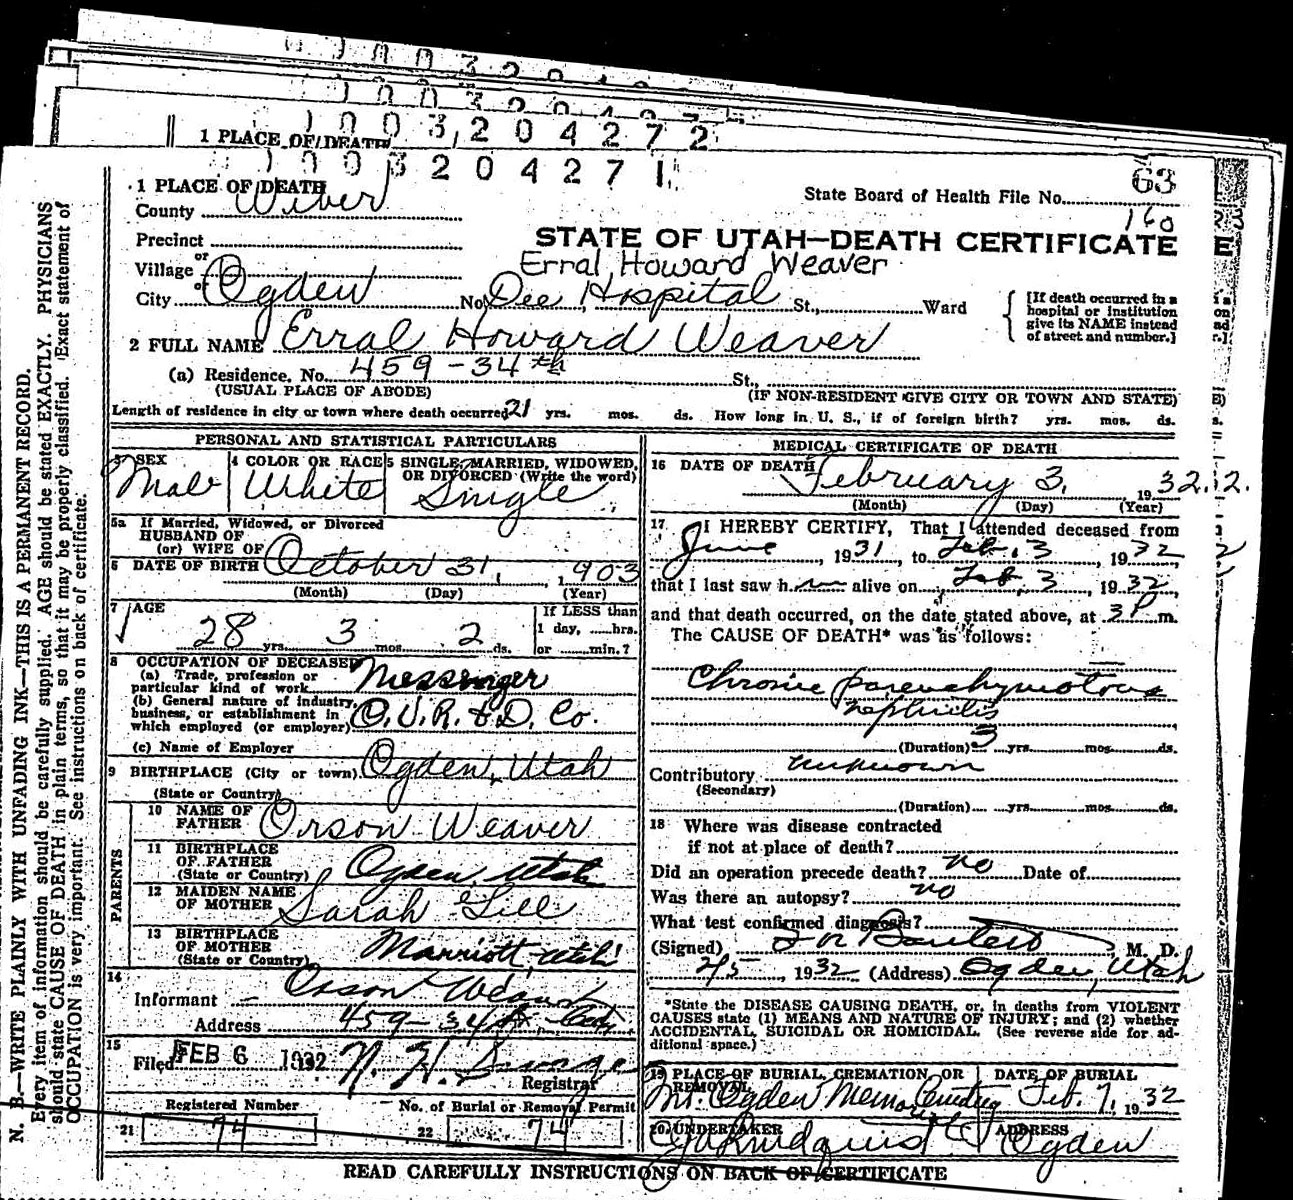 1 PLACE OF DEATH
1003204272
1003204271
63
1 PLACE OF DEATH
State Board of Health File No.
160
County Weber
STATE OF UTAH—DEATH CERTIFICATE
Precinct
Erral Howard Weaver
or
Village
or
City Ogden No. Dee Hospital St., Ward
[If death occurred in a hospital or institution give its NAME instead of street and number.]
2 FULL NAME Erral Howard Weaver
(a) Residence. No. 459-34th St.,
(USUAL PLACE OF ABODE) (IF NON-RESIDENT GIVE CITY OR TOWN AND STATE)
Length of residence in city or town where death occurred 21 yrs. mos. ds. How long in U. S., if of foreign birth? yrs. mos. ds.
PERSONAL AND STATISTICAL PARTICULARS
3 SEX Male
4 COLOR OR RACE White
5 SINGLE, MARRIED, WIDOWED, OR DIVORCED (Write the word) Single
5a If Married, Widowed, or Divorced
HUSBAND OF
(or) WIFE OF
6 DATE OF BIRTH October 31, 1903
(Month) (Day) (Year)
7 AGE
28 yrs. 3 mos. 2 ds.
If LESS than
1 day, hrs.
or min.?
8 OCCUPATION OF DECEASED
(a) Trade, profession or
particular kind of work Messenger
(b) General nature of industry,
business, or establishment in
which employed (or employer) O.U.R. & D. Co.
(c) Name of Employer
9 BIRTHPLACE (City or town) Ogden, Utah
(State or Country)
PARENTS
10 NAME OF FATHER Orson Weaver
11 BIRTHPLACE OF FATHER (State or Country) Ogden, Utah
12 MAIDEN NAME OF MOTHER Sarah Gill
13 BIRTHPLACE OF MOTHER (State or Country) Marriott, Utah
14
Informant Orson Weaver
Address 459-34th City
15
Filed FEB 6 1932 N. H. Savage
Registrar
Registered Number No. of Burial or Removal Permit
21 74 22 74
MEDICAL CERTIFICATE OF DEATH
16 DATE OF DEATH February 3, 1932
(Month) (Day) (Year)
17 I HEREBY CERTIFY, That I attended deceased from
June, 1931 to Feb. 3 1932
that I last saw him alive on Feb. 3 1932,
and that death occurred, on the date stated above, at 3 P m.
The CAUSE OF DEATH* was as follows:
Chronic parenchymatous
nephritis
(Duration) 3 yrs. mos. ds.
Contributory unknown
(Secondary)
(Duration) yrs. mos. ds.
18 Where was disease contracted
if not at place of death?
Did an operation precede death? no Date of
Was there an autopsy? no
What test confirmed diagnosis?
(Signed) M. D.
2/5, 1932 (Address) Ogden, Utah
*State the DISEASE CAUSING DEATH, or, in deaths from VIOLENT
CAUSES state (1) MEANS AND NATURE OF INJURY; and (2) whether
ACCIDENTAL, SUICIDAL OR HOMICIDAL. (See reverse side for ad-
ditional space.)
19 PLACE OF BURIAL, CREMATION, OR REMOVAL DATE OF BURIAL
Mt. Ogden Memorial Cemetery Feb. 7, 1932
20 UNDERTAKER ADDRESS
Lindquist Ogden
READ CAREFULLY INSTRUCTIONS ON BACK OF CERTIFICATE
N. B.—WRITE PLAINLY WITH UNFADING INK—THIS IS A PERMANENT RECORD.
Every item of information should be carefully supplied. AGE should be stated EXACTLY. PHYSICIANS
should state CAUSE OF DEATH in plain terms, so that it may be properly classified. Exact statement of
OCCUPATION is very important. See instructions on back of certificate.